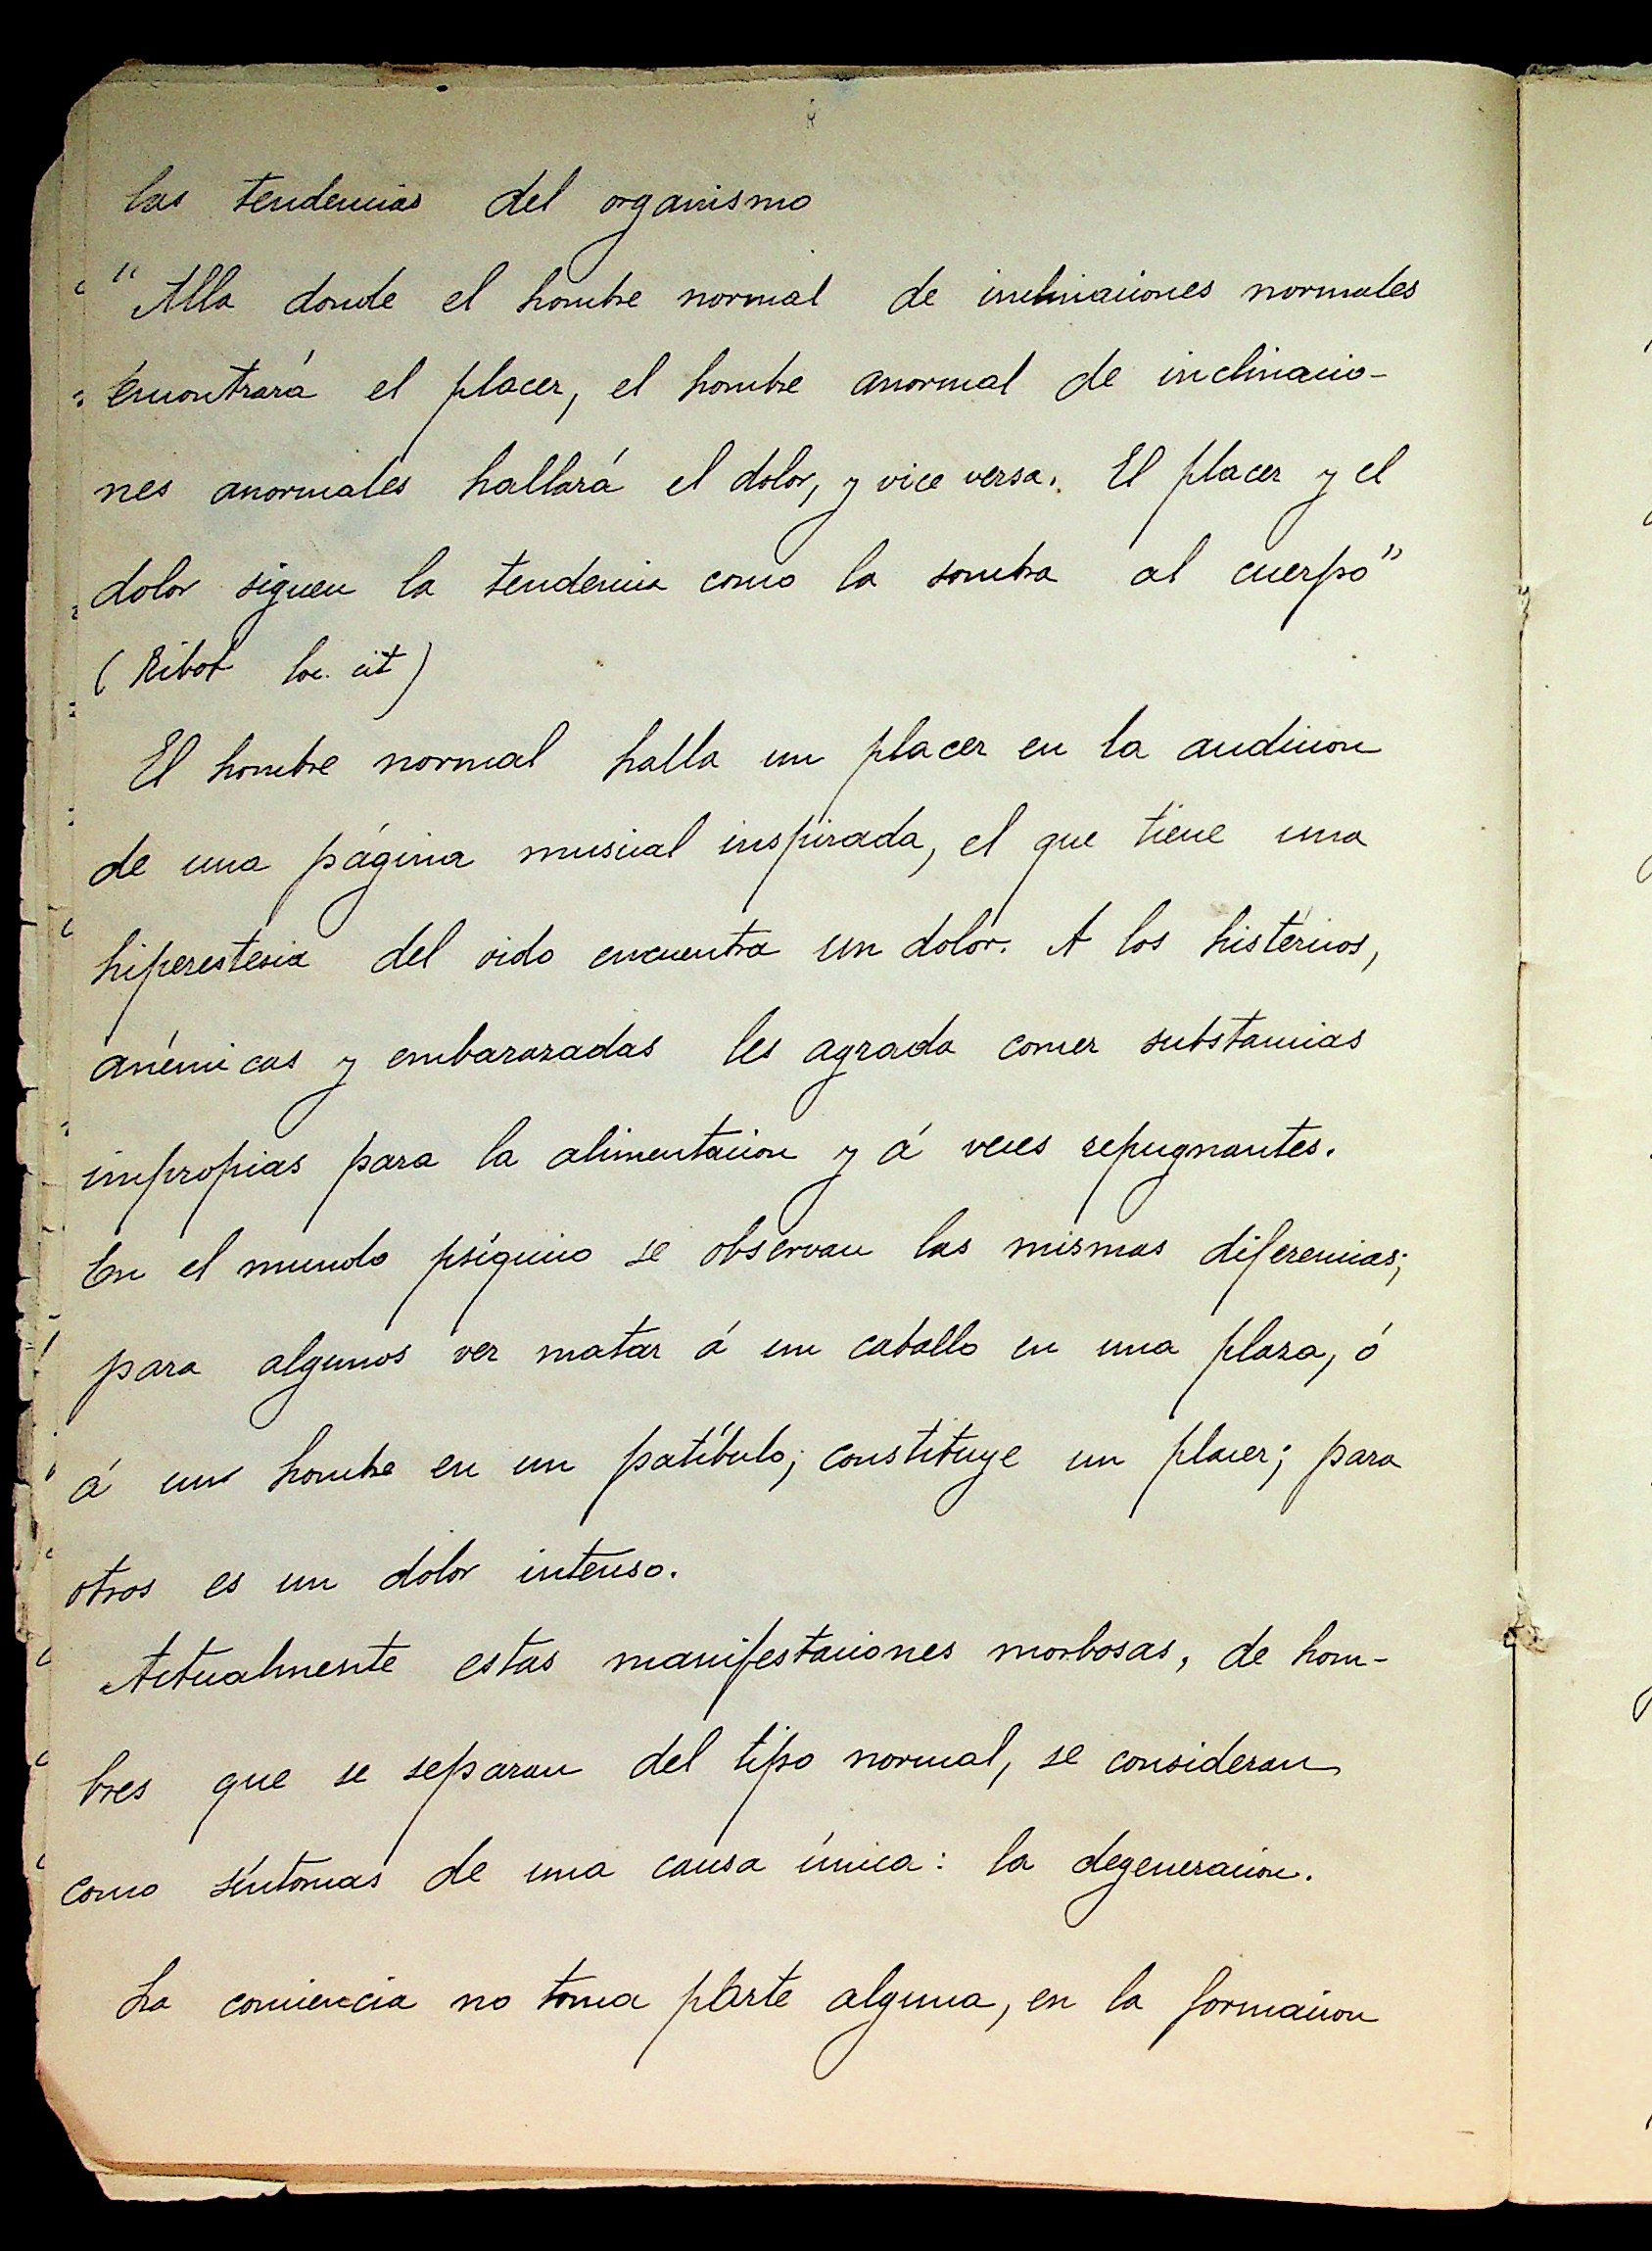 las tendencias del organismo
"Alla donde el hombre normal de inclinaciones normales
encontrará el placer, el hombre anormal de inclinacio-
nes anormales hallará el dolor, y vice versa. El placer y el
dolor siguen la tendencia como la sombra al cuerpo"
(Ribot loc. cit)
El hombre normal halla un placer en la audicion
de una página musical inspirada, el que tiene una
hiperestesia del oido encuentra un dolor. A los histéricos,
anémicas y embarazadas les agrada comer substancias
impropias para la alimentacion y á veces repugnantes.
En el mundo psíquico se observan las mismas diferencias;
para algunos ver matar á un caballo en una plaza, ó
á un hombre en un patíbulo; constituye un placer; para
otros es un dolor intenso.
Actualmente estas manifestaciones morbosas, de hom-
bres que se separan del tipo normal, se consideran
como síntomas de una causa única: la degeneracion.
La conciencia no toma parte alguna, en la formacion